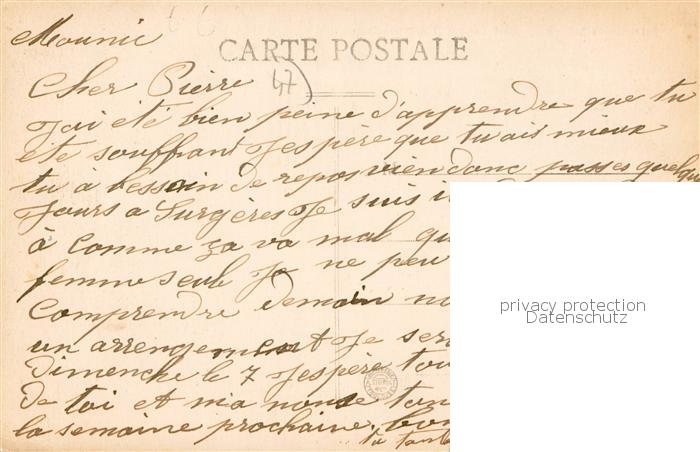 Mounic
CARTE POSTALE
47)
Cher Pierre
J'ai été bien peine d'apprendre que tu
été souffrant J'espère que tu ais mieux
tu à bessoin de repos vien donc passes quelque
Jours a Surgères Je suis i
à comme ça va mal qu
femme seule Je ne peu
comprendre demain no
un arrengement Je ser
Dimenche le 7 J'espère tou
de toi et ma nonse tan
la semaine prochaine, bon
ta tante
privacy protection
Datenschutz